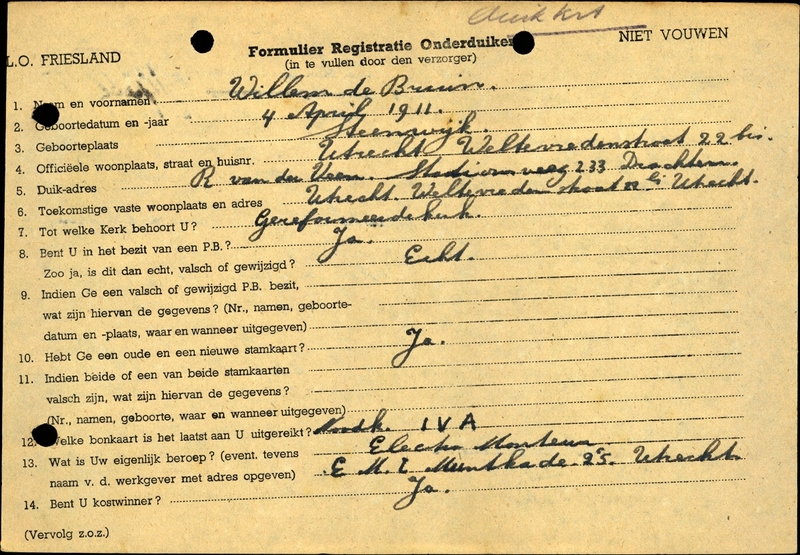 duikkrt
L.O. FRIESLAND
Formulier Registratie Onderduiker
NIET VOUWEN
(in te vullen door den verzorger)
1. Naam en voornamen Willem de Bruin.
2. Geboortedatum en -jaar 4 April 1911.
3. Geboorteplaats Steenwijk.
4. Officiëele woonplaats, straat en huisnr. Utrecht Weltevredenstraat 22 bis.
5. Duik-adres R van der Veen. Stationsweg 233 Drachten.
6. Toekomstige vaste woonplaats en adres Utrecht Weltevredenstraat 22 bis Utrecht.
7. Tot welke Kerk behoort U? Gereformeerde kerk.
8. Bent U in het bezit van een P.B.? Ja.
Zoo ja, is dit dan echt, valsch of gewijzigd? Echt.
9. Indien Ge een valsch of gewijzigd P.B. bezit,
wat zijn hiervan de gegevens? (Nr., namen, geboorte-
datum en -plaats, waar en wanneer uitgegeven)
10. Hebt Ge een oude en een nieuwe stamkaart? Ja.
11. Indien beide of een van beide stamkaarten
valsch zijn, wat zijn hiervan de gegevens?
(Nr., namen, geboorte, waar en wanneer uitgegeven)
12. Welke bonkaart is het laatst aan U uitgereikt? Noodk. IVA
13. Wat is Uw eigenlijk beroep? (event. tevens Electro Monteur
naam v. d. werkgever met adres opgeven) E.M.I. Muntkade 25. Utrecht.
14. Bent U kostwinner? Ja.
(Vervolg z.o.z.)